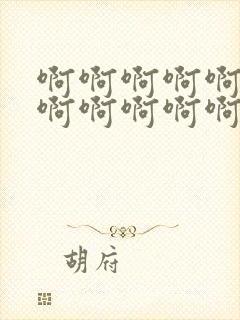 啊啊啊啊啊
啊啊啊啊啊
胡府